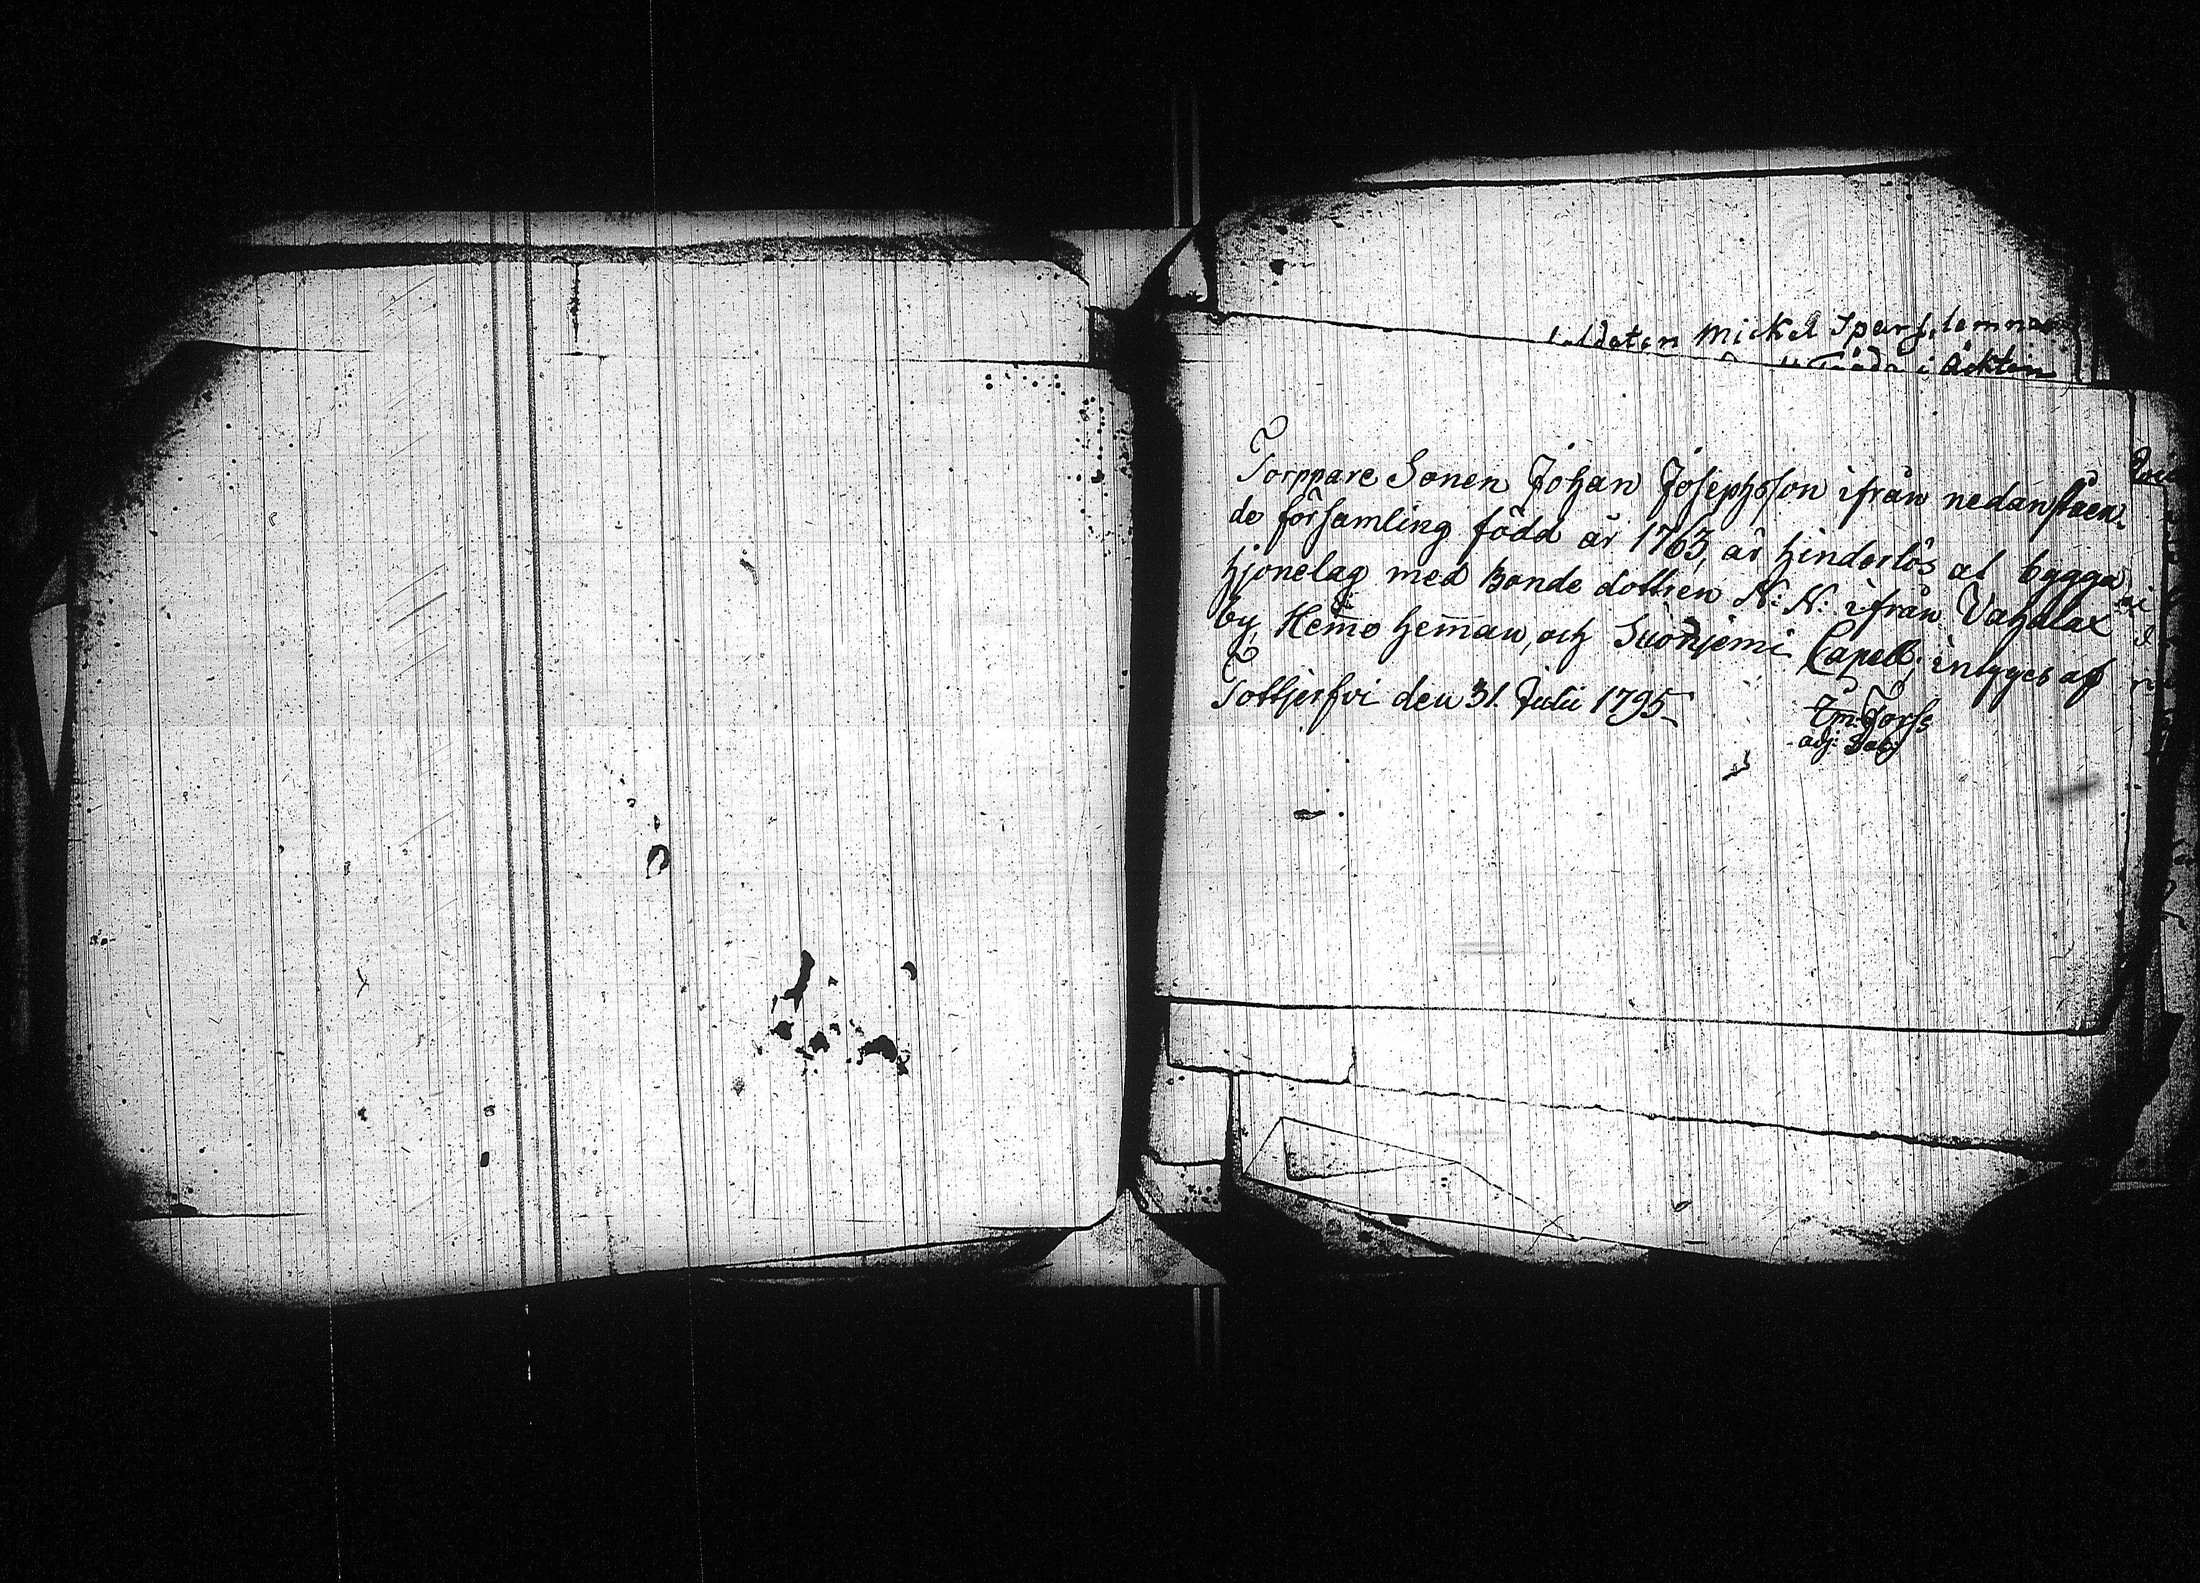 Soldaten Mickel Sparf, lemnas
i Äkten
Torppare Sonen Johan Josephsson ifrån nedanståen-
de församling född år 1763, är hinderlös at bygga
hjonelag med Bonde dottren N: N: ifrån Vahalax
by, Hem̄o hem̄an, och Suonjemi Capell; intyges af
Tottjerfvi den 31. Julii 1795.
Em: Forss
adj: Sac: